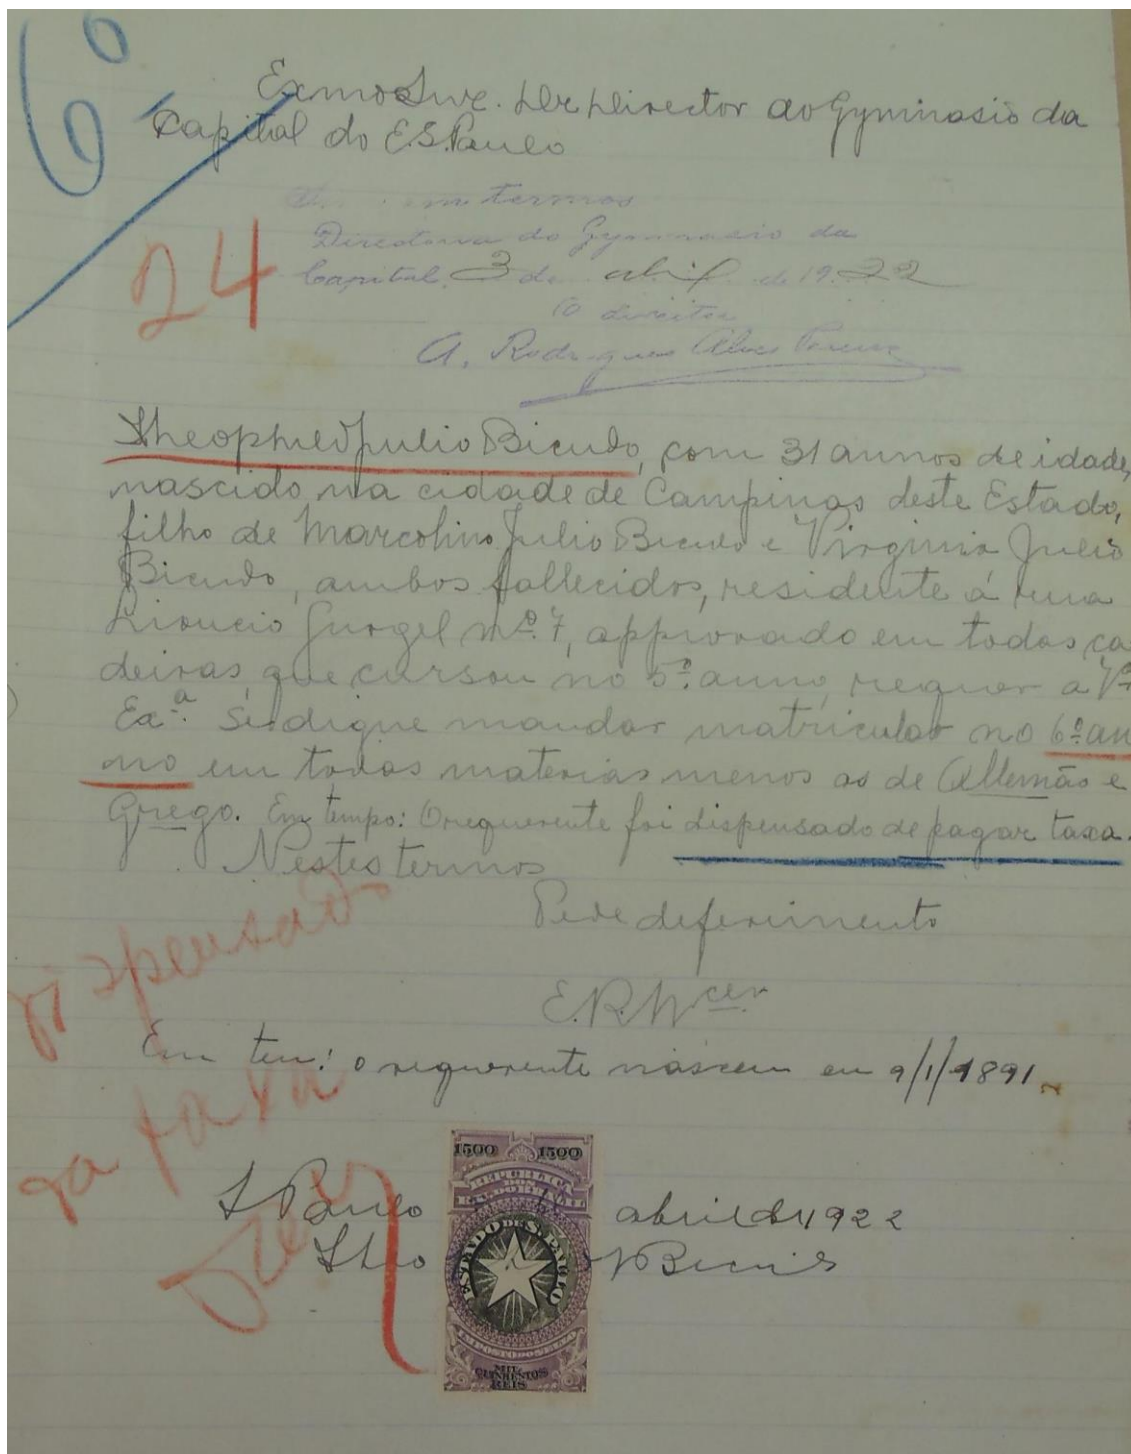 6º
Exmo Snr. Dr Director do Gymnasio da
Capital do E.S.Paulo
em termos
Directoria do Gymnasio da
Capital, 3 de abril de 1922
O director
A. Rodrigues Alves Pereira
24
Theophilo Julio Bicudo, com 31 annos de idade,
nascido na cidade de Campinas deste Estado,
filho de Marcolino Julio Bicudo e Virginia Julio
Bicudo, ambos fallecidos, residente á rua
Gurgel nº 7, approvado em todas ca
deiras, que cursou no 5º anno, requer a Vª
Exª. Se digne mandar matricular no 6º an
no em todas materias menos as de Allemão e
Grego. Em tempo: O requerente foi dispensado de pagar taxa.
Nestes termos
Pede deferimento
E.R.Mcer.
dispensado
da taxa
Em tem: o requerente nasceu em 9/1/1891
S Paulo abril de 1922
Theo Bicudo
1500 1500
REPUBLICA
DOS
E.U. DO BRAZIL
ESTADO DE S. PAULO
IMPOSTO DO SELLO
MIL
QUINHENTOS
REIS